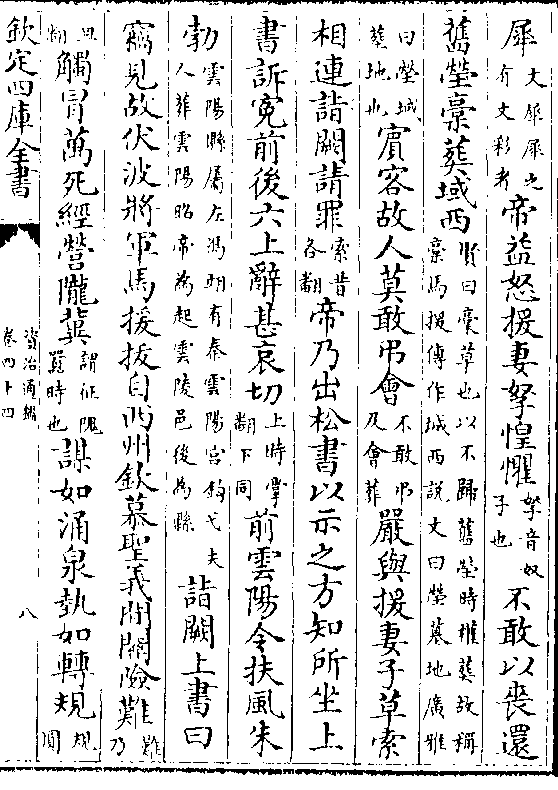 犀文犀犀之有文彩者帝益怒援妻孥惶懼孥音奴子也不敢以喪還
舊塋稾葬域西賢曰稾草也以不歸舊塋時權葬故稱稾馬援傳作城西說文曰塋墓地廣雅
曰塋域葬地也賓客故人莫敢弔會不敢弔及會葬嚴與援妻子草索
相連詣闕請罪索昔各翻帝乃出松書以示之方知所坐上
書訴寃前後六上辭甚哀切上時掌翻下同前雲陽令扶風朱
勃雲陽縣屬左馮翊有秦雲陽宫鉤弋夫人葬雲陽昭帝為起雲陵邑後為縣詣闕上書曰
竊見故伏波將軍馬援拔自西州欽慕聖義閒關險難難乃
旦翻觸冒萬死經營隴冀謂征隗囂時也謀如涌泉埶如轉規規圓
欽定四庫全書
資治通鑑
卷四十四
八